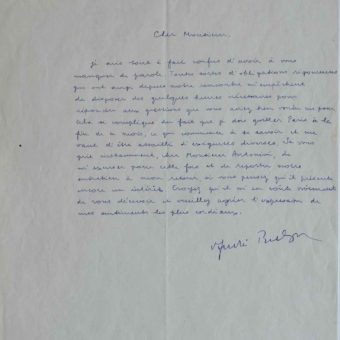 Cher Monsieur,
Je suis tout à fait confus d'avoir à vous
manquer de parole. Toutes sortes d'obligations rigoureuses
qui ont surgi depuis notre rencontre m'empêchent
de disposer des quelques heures nécessaires pour
répondre aux questions que vous avez bien voulu me poser
cela se complique du fait que je dois quitter Paris à la
fin de ce mois, ce qui commence à se savoir et me
vaut d'être assailli d'exigences diverses. Je vous
prie instamment, cher Monsieur, de
m'excuser pour cette fois et de reporter notre
entretien à mon retour si vous pensez qu'il présente
encore un intérêt. Croyez qu'il m'en coûte vraiment
de vous décevoir et veuillez agréer l'expression de
mes sentiments les plus cordiaux.
André Breton